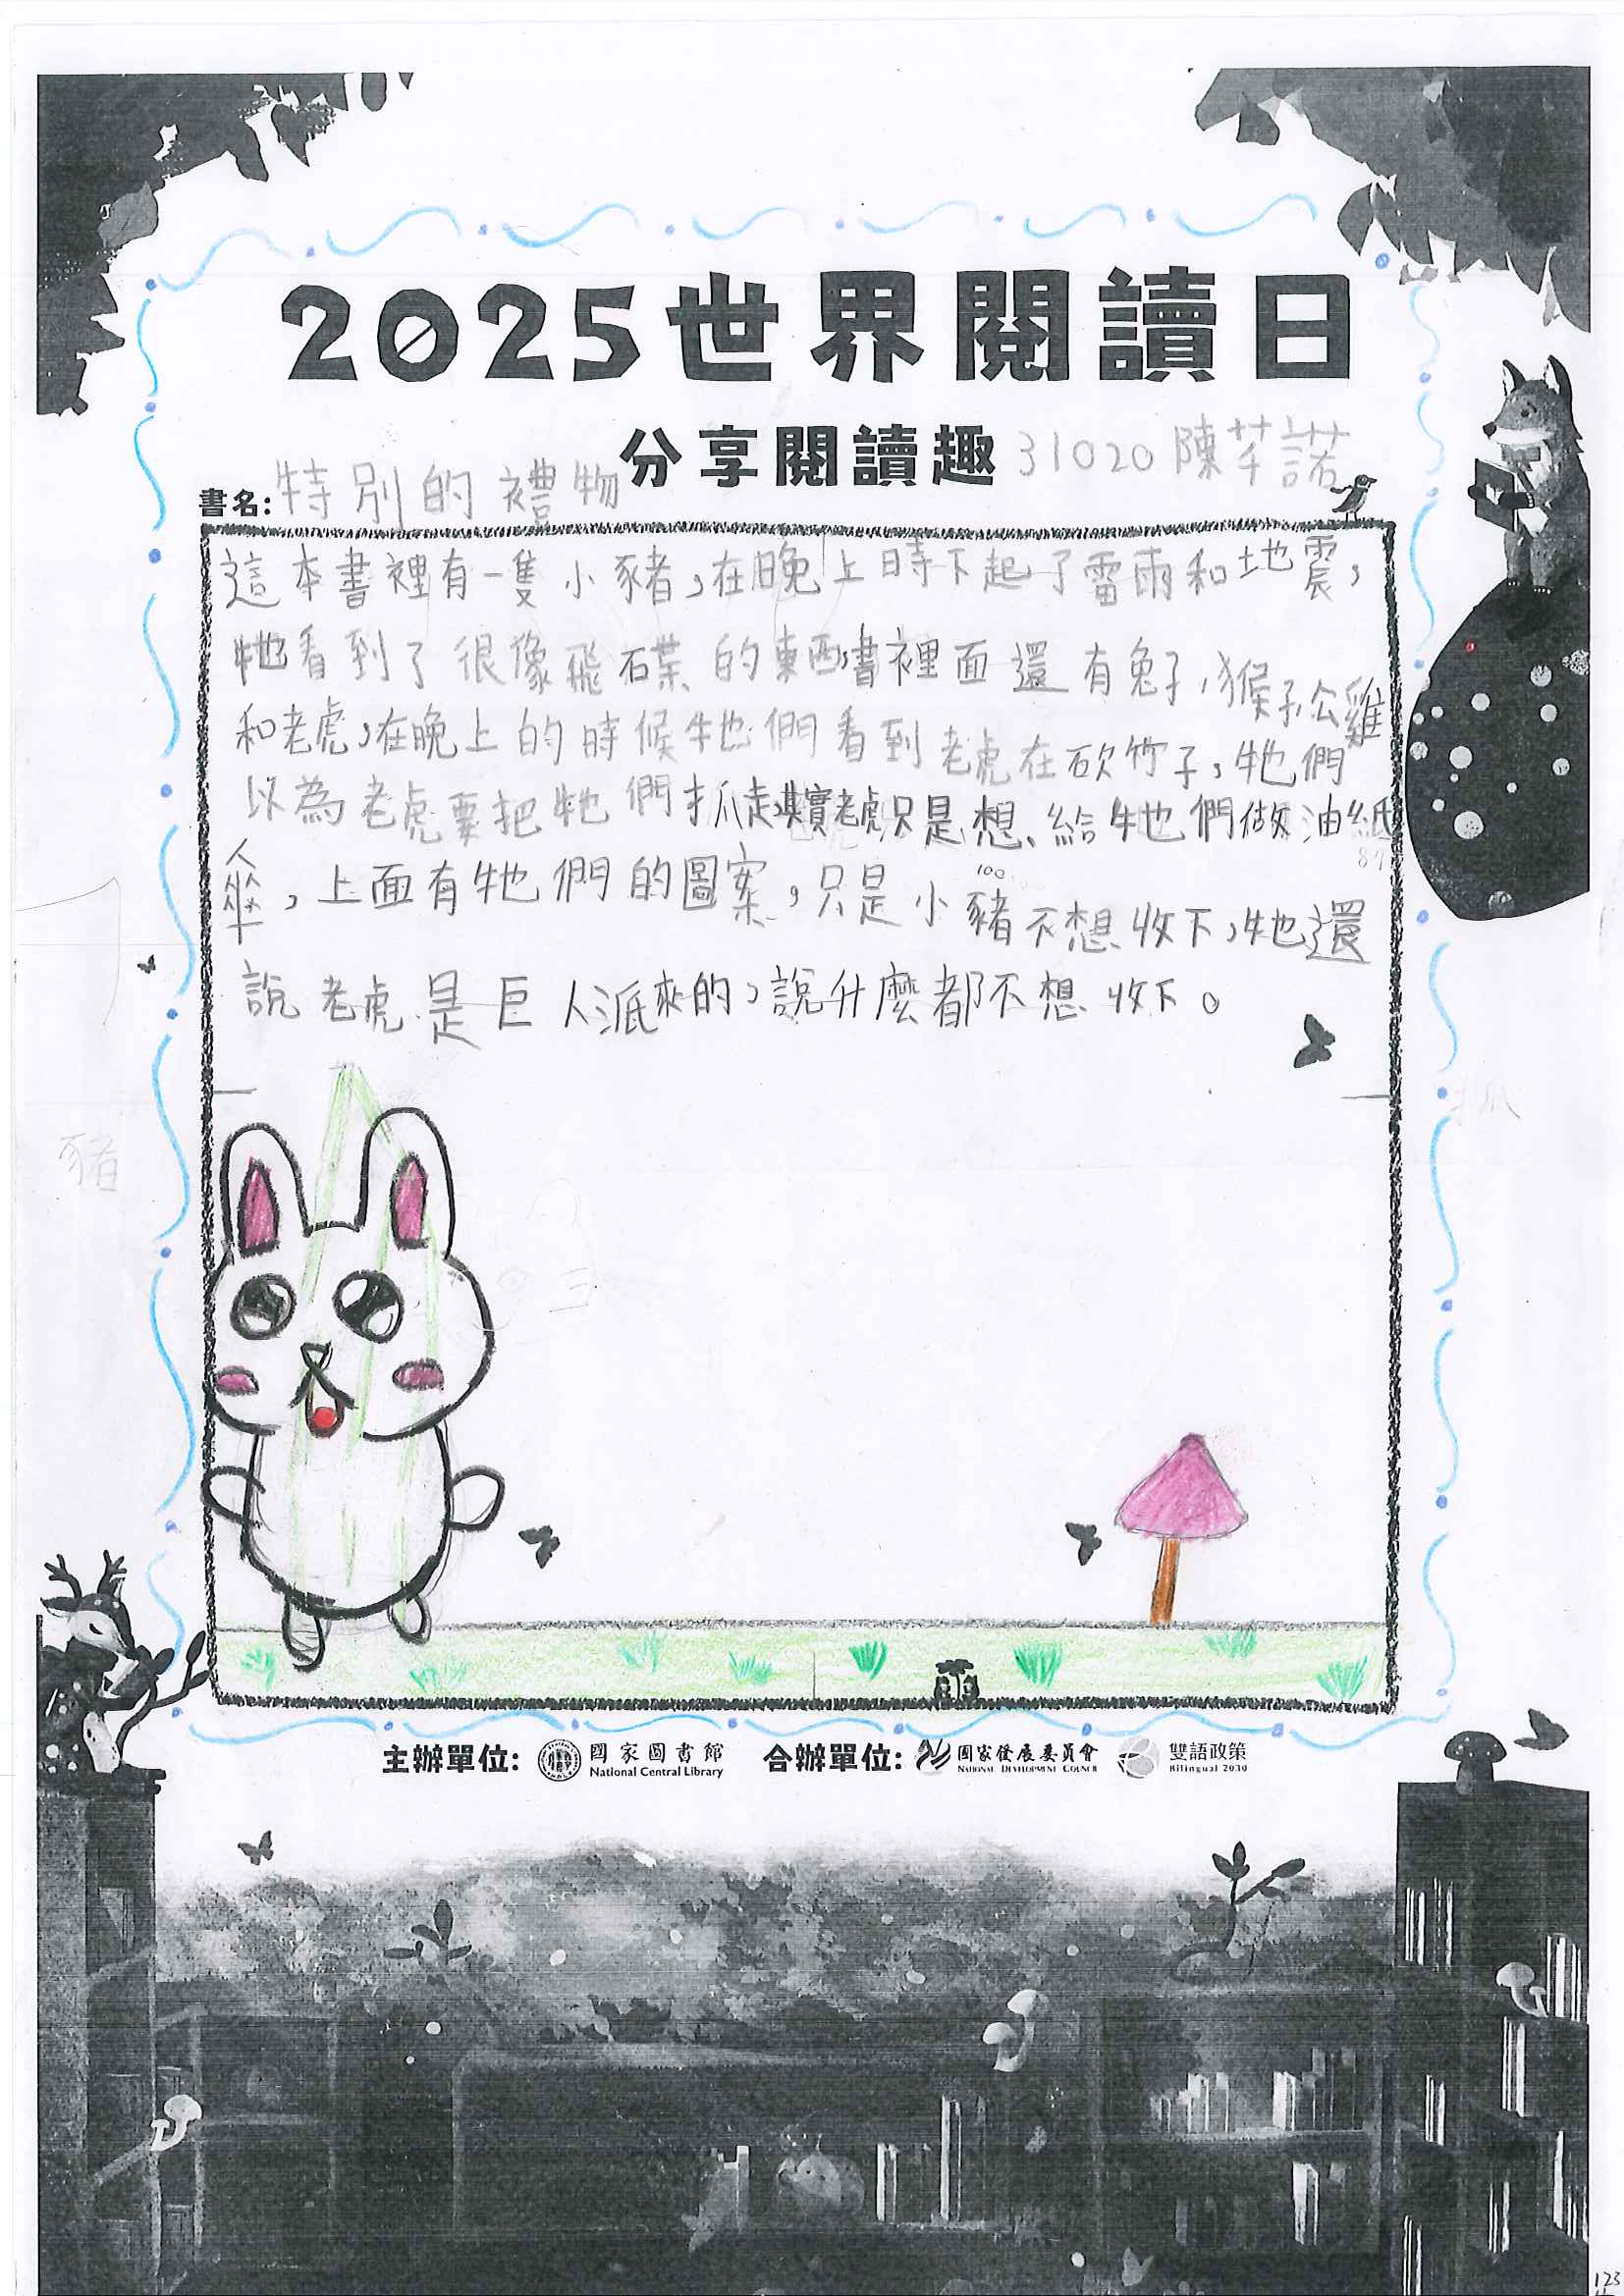 2025世界閱讀日
分享閱讀趣 31020 陳芊諾
書名: 特別的禮物
這本書裡有一隻小豬,在晚上時下起了雷雨和地震,
牠看到了很像飛碟的東西,書裡面還有兔子,猴子,公雞
和老虎,在晚上的時候牠們看到老虎在砍竹子,牠們
以為老虎要把牠們抓走,其實老虎只是想給牠們做油紙
傘,上面有牠們的圖案,只是小豬不想收下,牠還
說老虎是巨人派來的,說什麼都不想收下。
100
87
豬
抓
主辦單位: 國家圖書館 National Central Library 合辦單位: 國家發展委員會 National Development Council 雙語政策 Bilingual 2030
123